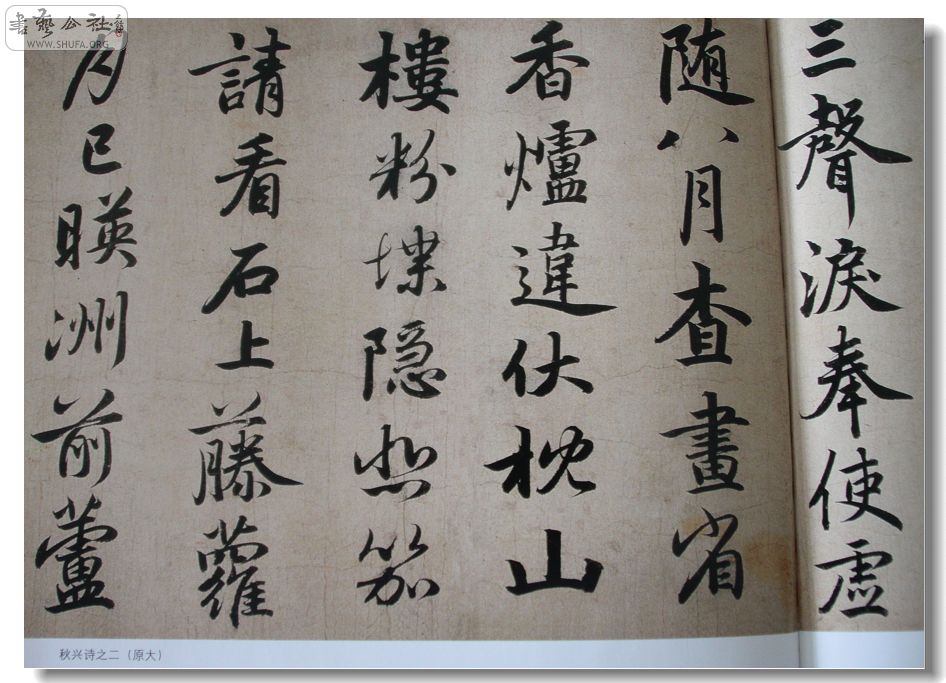 三聲淚奉使虛
随八月查畫省
香爐違伏枕山
樓粉堞隐悲笳
請看石上藤蘿
月已暎洲前蘆
秋兴诗之二（原大）
書藝公社
WWW.SHUFA.ORG